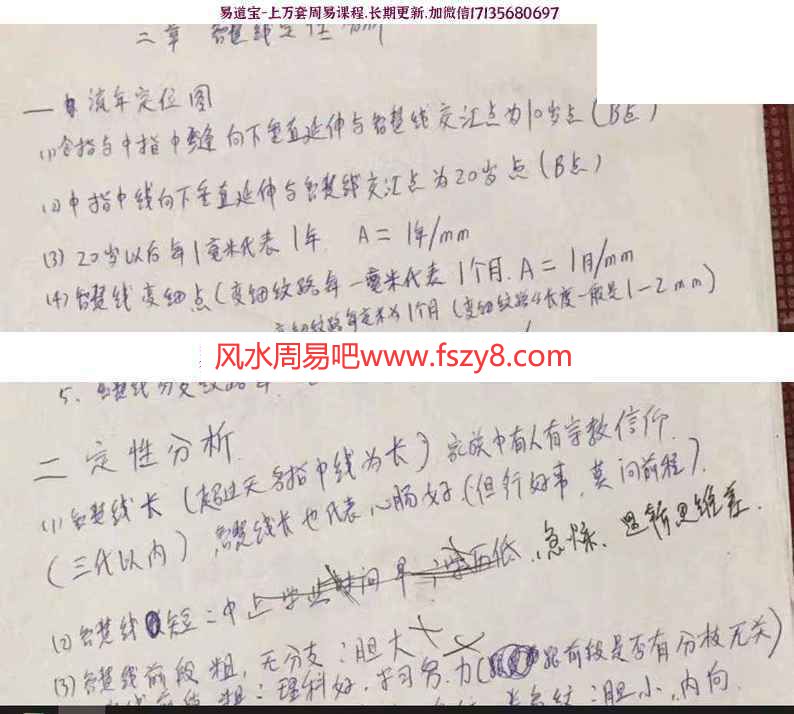 易道宝-上万套周易课程.长期更新.加微信17135680697
二章 智慧线定性
一 流年定位图
(1)食指与中指中缝向下垂直延伸与智慧线交汇点为10岁点(B点)
(2)中指中线向下垂直延伸与智慧线交汇点为20岁点(B点)
(3)20岁以后每1毫米代表1年. A=1年/mm
(4)智慧线变细点(变细纹路每一毫米代表1个月.A=1月/mm
变细纹路每毫米为1个月(变细纹路4长度一般是1-2mm)
风水周易吧www.fszy8.com
5. 智慧线分支纹路
二 定性分析
(1)智慧线长(超过无名指中线为长)家族中有人有宗教信仰.
(三代以内),智慧线长也代表心肠好(但行好事,莫问前程).
(2)智慧线短:中 急燥、思维差.
(3)智慧线前段粗,无分支:胆大 前段是否有分枝无关)
粗:理科好,学习努力
胆小,内向